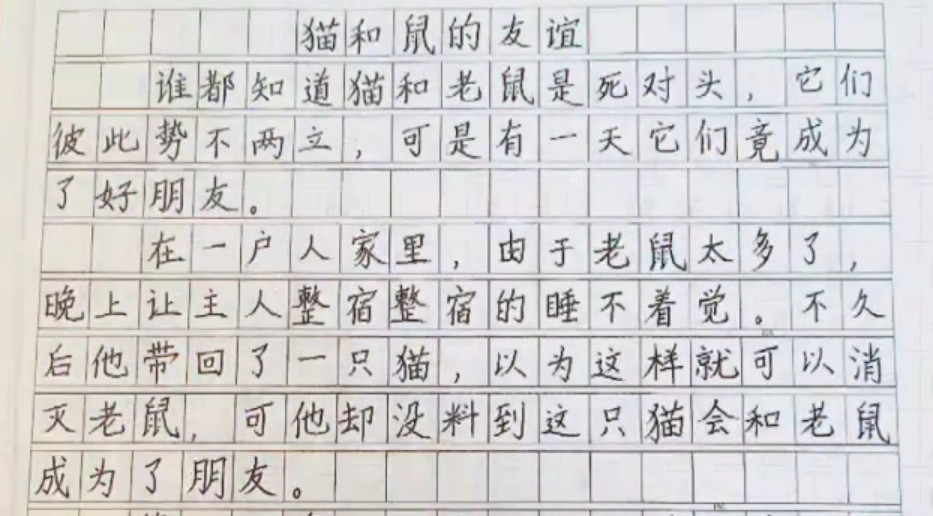 猫和鼠的友谊
谁都知道猫和老鼠是死对头，它们
彼此势不两立，可是有一天它们竟成为
了好朋友。
在一户人家里，由于老鼠太多了，
晚上让主人整宿整宿的睡不着觉。不久
后他带回了一只猫，以为这样就可以消
灭老鼠，可他却没料到这只猫会和老鼠
成为了朋友。